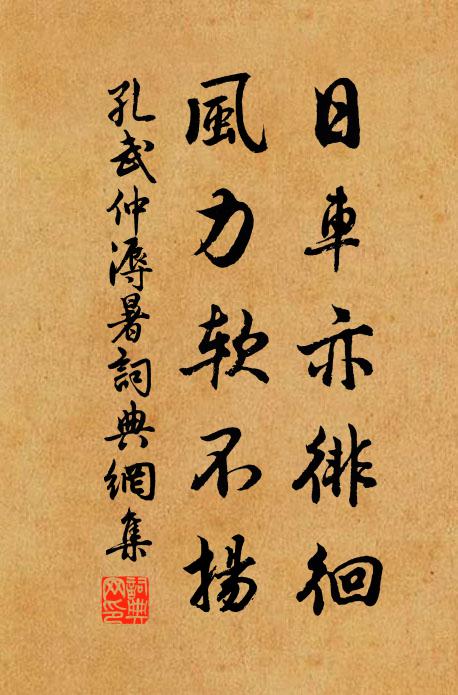 日車亦徘徊
風力軟不揚
孔武仲溽暑詞典網集
詞典网印